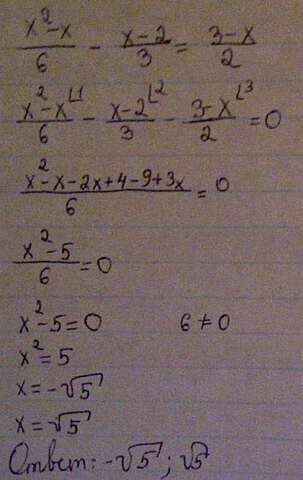 (x²-x)/6 - (x-2)/3 = (3-x)/2
(x²-x⌊1)/6 - (x-2⌊2)/3 - (3-x⌊3)/2 = 0
(x²-x-2x+4-9+3x)/6 = 0
(x²-5)/6 = 0
x²-5=0 6≠0
x²=5
x=-√5
x=√5
Ответ: -√5; √5